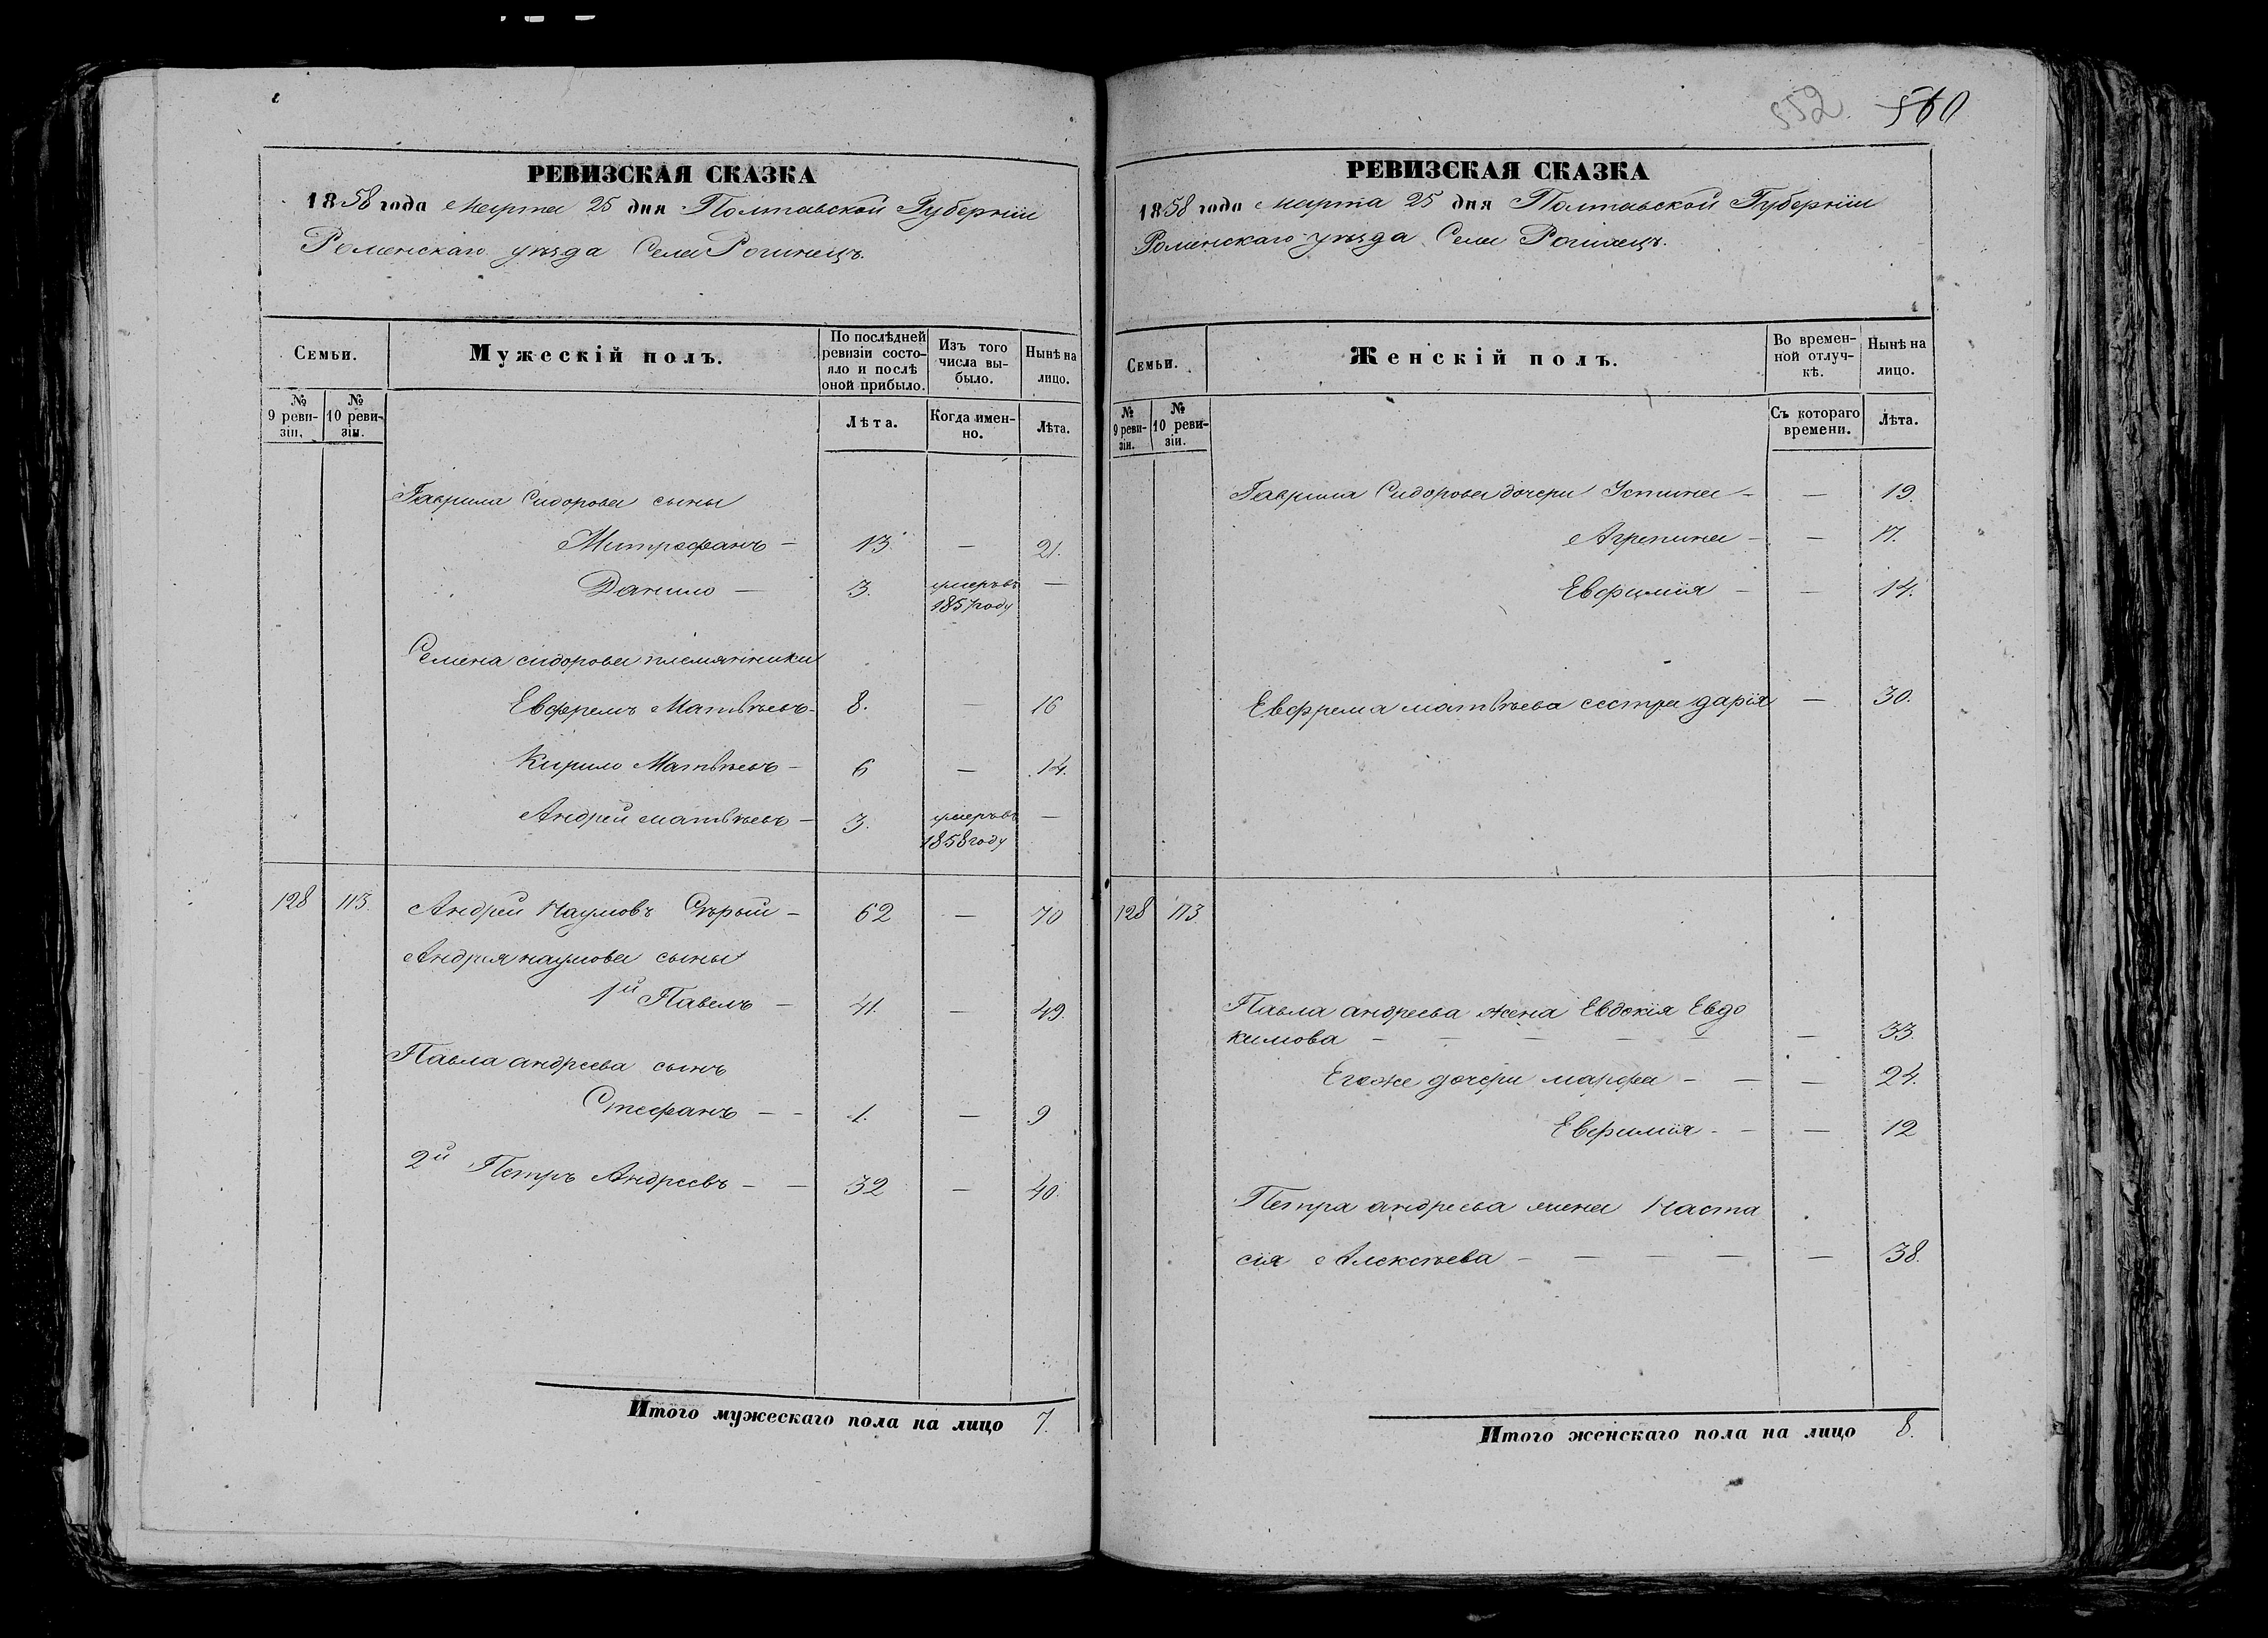 552. 560
РЕВИЗСКАЯ СКАЗКА
1858 года Марта 25 дня Полтавской Губерніи
Роменскаго уѣзда Села Рогинецъ.
Семьи.
Мужескій полъ.
По послѣдней ревизіи состояло и послѣ оной прибыло.
Изъ того числа выбыло.
Нынѣ на лицо.
№ 9 ревизіи.
№ 10 ревизіи.
Лѣта.
Когда именно.
Лѣта.
Гаврила Сидорова сыны
Митрофанъ — 13 — 21.
Данило — 3. умеръ въ —
1857 году
Семена сидорова племянники
Евфремъ Матвѣевъ - 8. — 16
Кирило Матвѣевъ - 6 — 14.
Андрей матвѣевъ - 3. умеръ въ —
1858 году
128 113. Андрей Наумовъ Сѣрый - 62 — 70
Андрея наумова сыны
1й Павелъ - 41. — 49.
Павла андреева сынъ
Стефанъ - - 1. — 9
2й Петръ Андреевъ - - 32 — 40.
Итого мужескаго пола на лицо 7.
РЕВИЗСКАЯ СКАЗКА
1858 года Марта 25 дня Полтавской Губерніи
Роменскаго уѣзда Села Рогинецъ.
Семьи.
Женскій полъ.
Во временной отлучкѣ.
Нынѣ на лицо.
№ 9 ревизіи.
№ 10 ревизіи.
Съ котораго времени.
Лѣта.
Гаврила Сидорова дочери Устина - — 19.
Агрепина - — 17.
Евфимія - — 14.
Евфрема матвѣева сестра дарія — 30.
128 113.
Павла андреева жена Евдокія Евдо
кимова - - - - - — 33.
Егоже дочери марфа - - — 24.
Евфимія - - — 12
Петра андреева жена Наста
сія Алексѣева - - - - — 38.
Итого женскаго пола на лицо 8.